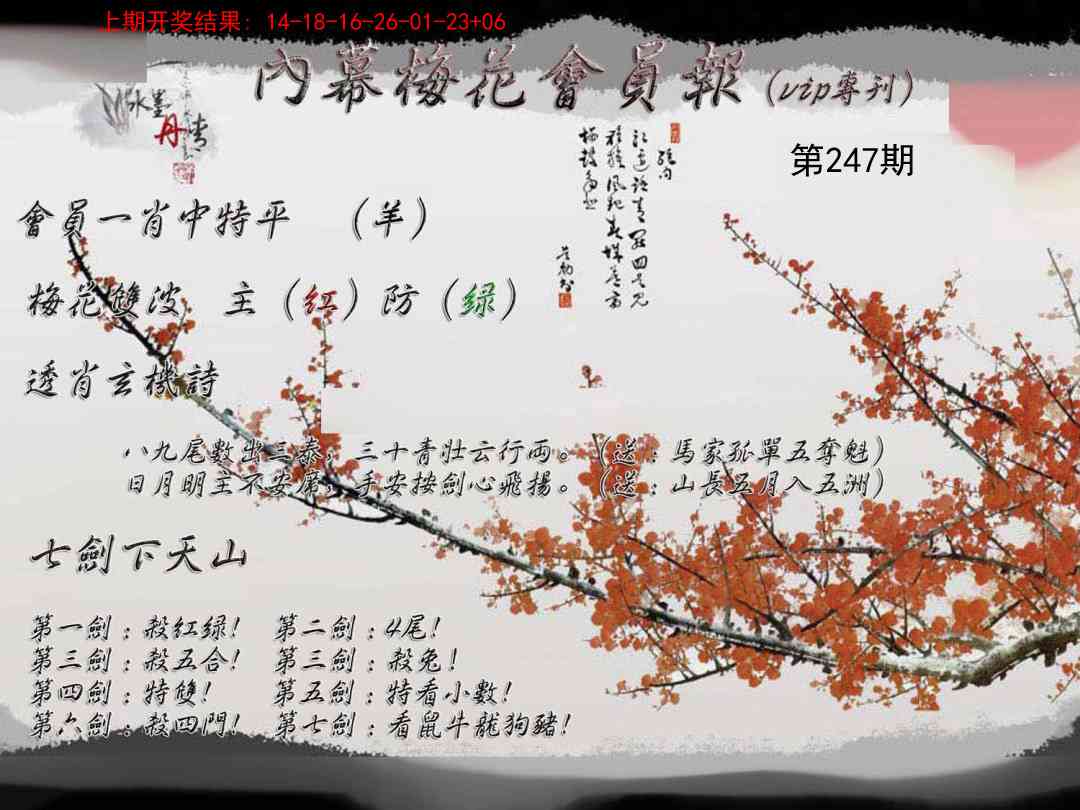 上期开奖结果: 14-18-16-26-01-23+06
內幕梅花會員報(vip專刊)
水墨
丹青
第247期
會員一肖中特平 (羊)
梅花雙波 主(红)防(绿)
透肖玄機詩
八九尾數出三泰，三十青壯云行両。(送:馬家孤單五奪魁)
日月明主不安席，手安按劍心飛揚。(送:山長五月入五洲)
七劍下天山
第一劍:殺红绿! 第二劍:4尾!
第三劍:殺五合! 第三劍:殺兔!
第四劍:特雙! 第五劍:特看小數!
第六劍:殺四門! 第七劍:看鼠牛龍狗豬!